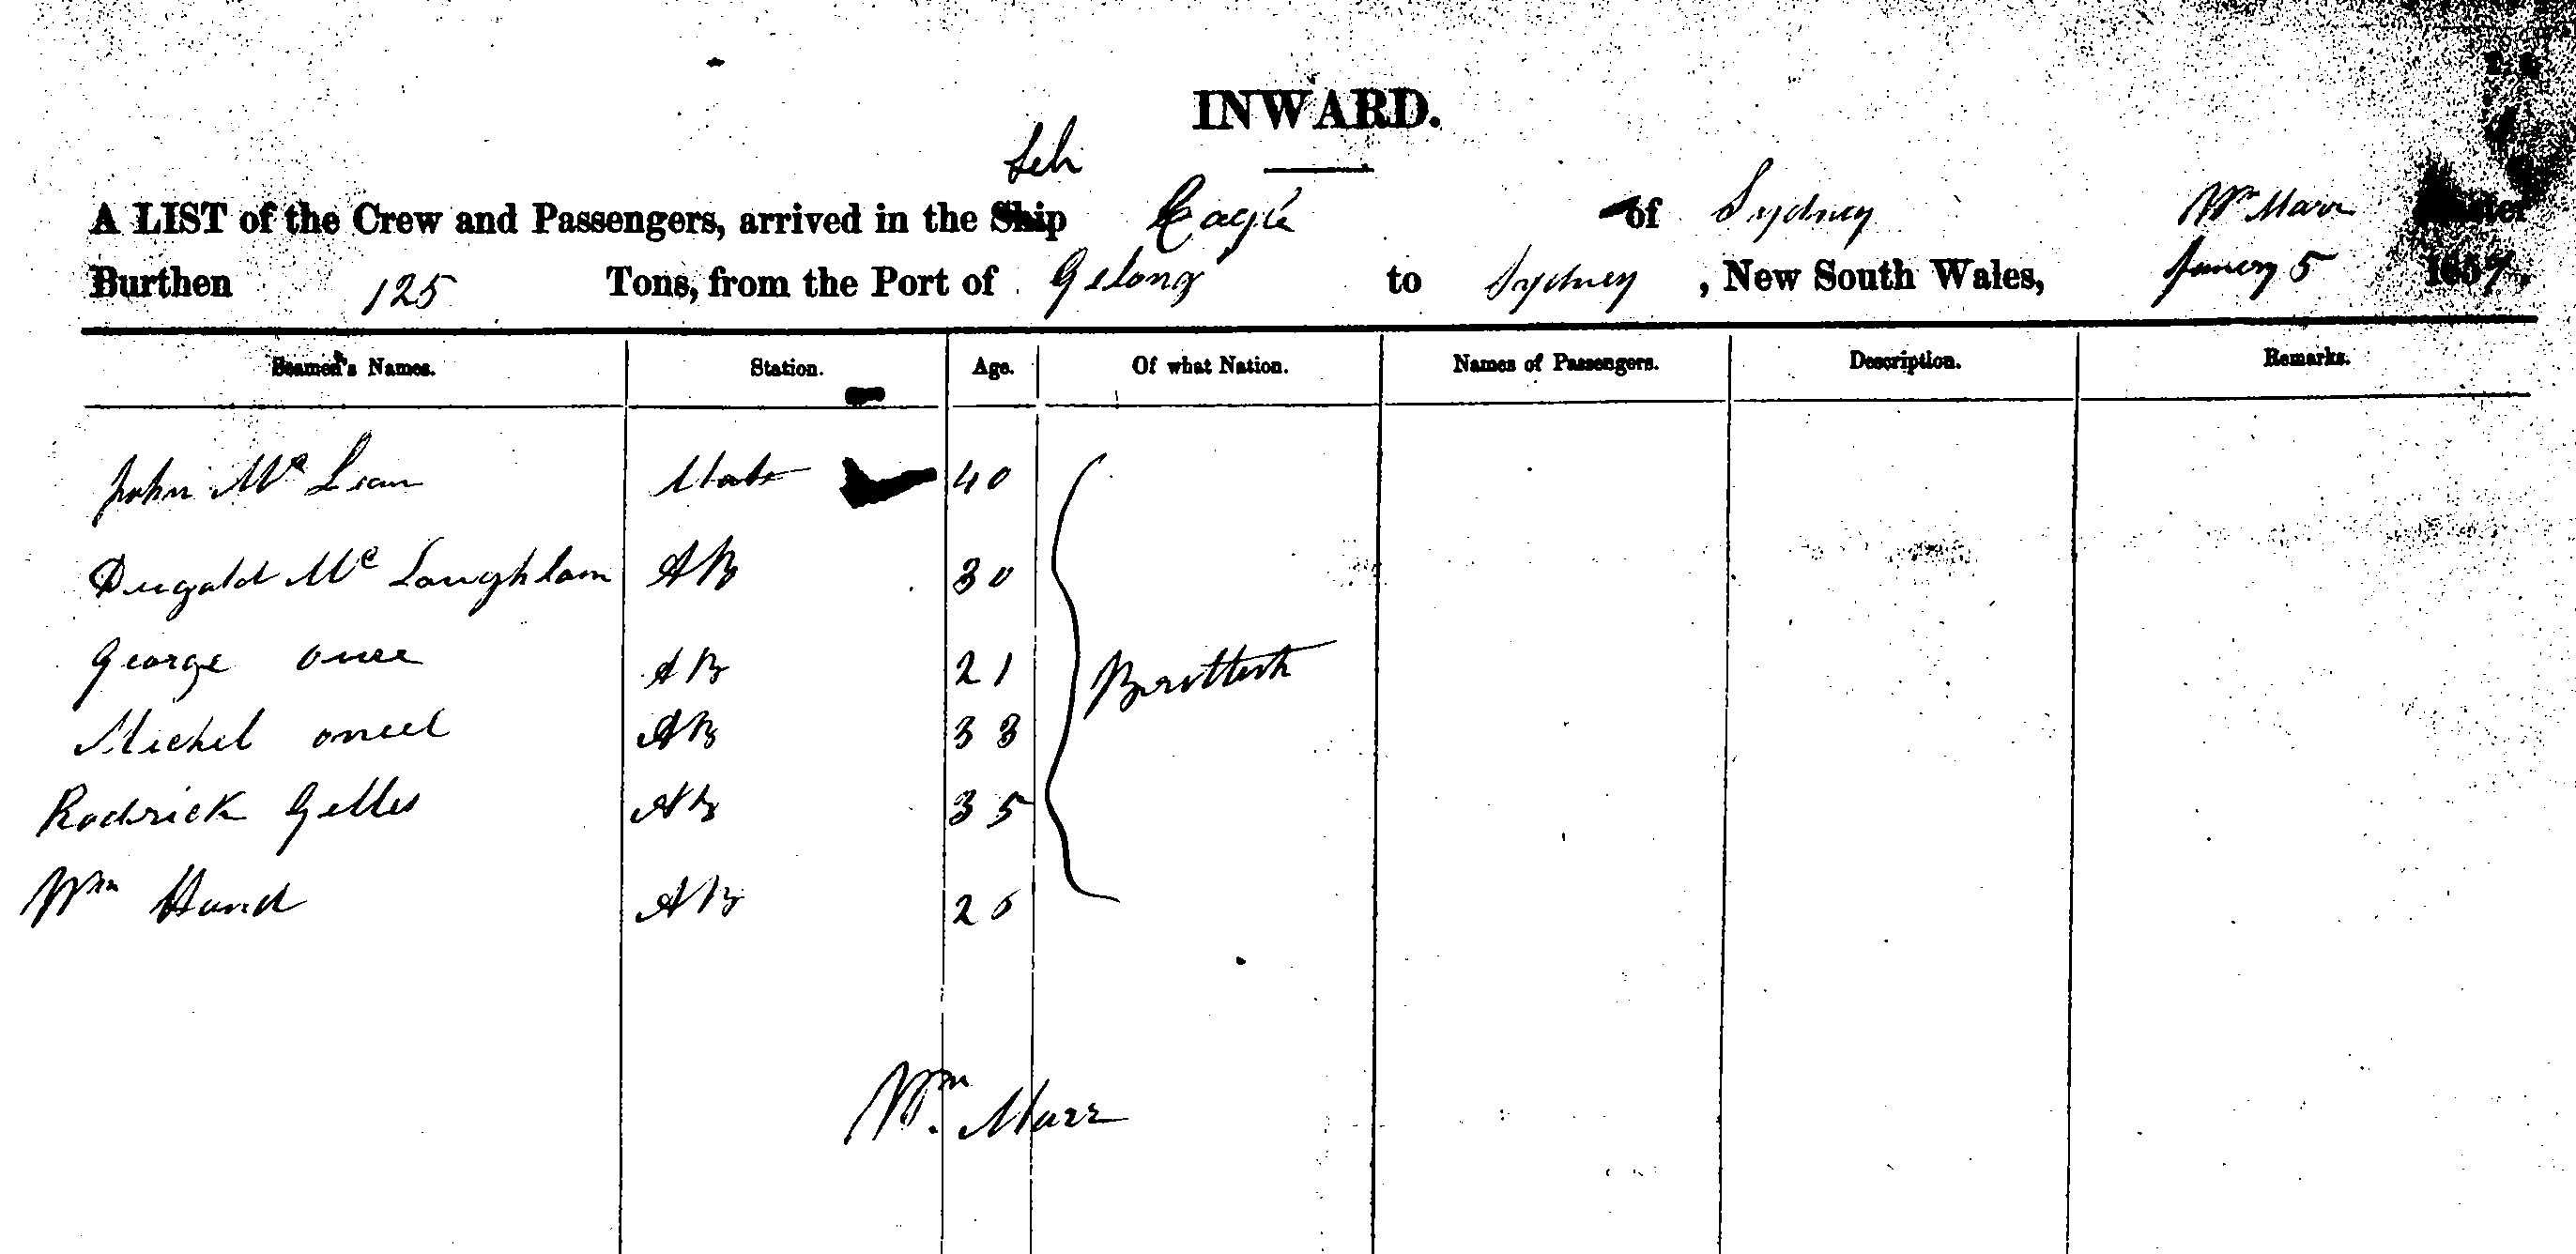 INWARD.
Sch
A LIST of the Crew and Passengers, arrived in the Ship Eagle of Sydney Wm Marr Master
Burthen 125 Tons, from the Port of Gelong to Sydney, New South Wales, January 5 1857.
Seamen's Names. Station. Age. Of what Nation. Names of Passengers. Description. Remarks.
John Mc Lean Mate 40
Dugald Mc Loughlam AB 30
George AB 21
Brittish
Michel oneel AB 33
Rodrick Gilles AB 35
Wm Hand AB 26
Wm. Marr